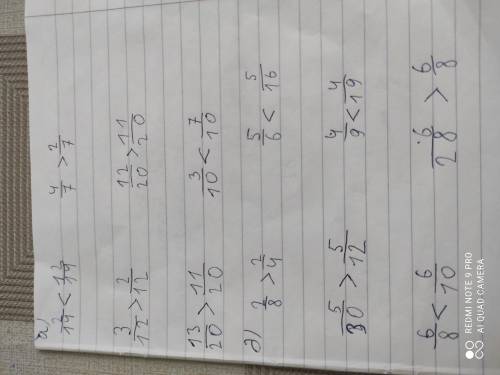 a)
4/7 > 2/7
3/12 > 2/12    12/20 > 11/20
13/20 > 11/20    3/10 < 7/10
д) 2/8 > 2/4    5/6 < 5/16
5/30 > 5/12    4/9 < 4/19
6/8 < 6/10    6/28 > 6/8
REDMI NOTE 9 PRO
AI QUAD CAMERA